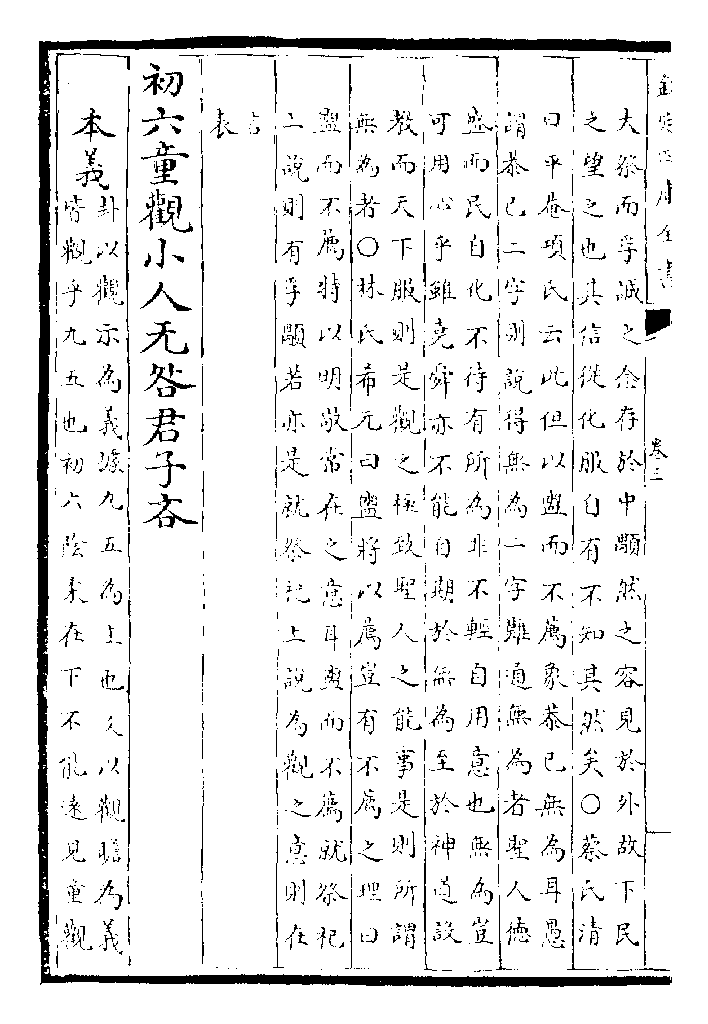 欽定四庫全書
卷三
大祭而孚誠之念存於中顒然之容見於外故下民
之望之也其信從化服自有不知其然矣○蔡氏清
曰平菴項氏云此但以盥而不薦象恭已無為耳愚
謂恭已二字則說得無為二字難道無為者聖人德
盛而民自化不待有所為非不輕自用意也無為豈
可用心乎雖堯舜亦不能自期於無為至於神道設
教而天下服則是觀之極致聖人之能事是則所謂
無為者○林氏希元曰盥將以薦豈有不薦之理曰
盥而不薦特以明敬常在之意耳盥而不薦就祭祀
上說則有孚顒若亦是就祭祀上說為觀之意則在
言
表
初六童觀小人无咎君子吝
本義
卦以觀示為義據九五為主也爻以觀瞻為義
皆觀乎九五也初六陰柔在下不能遠見童觀